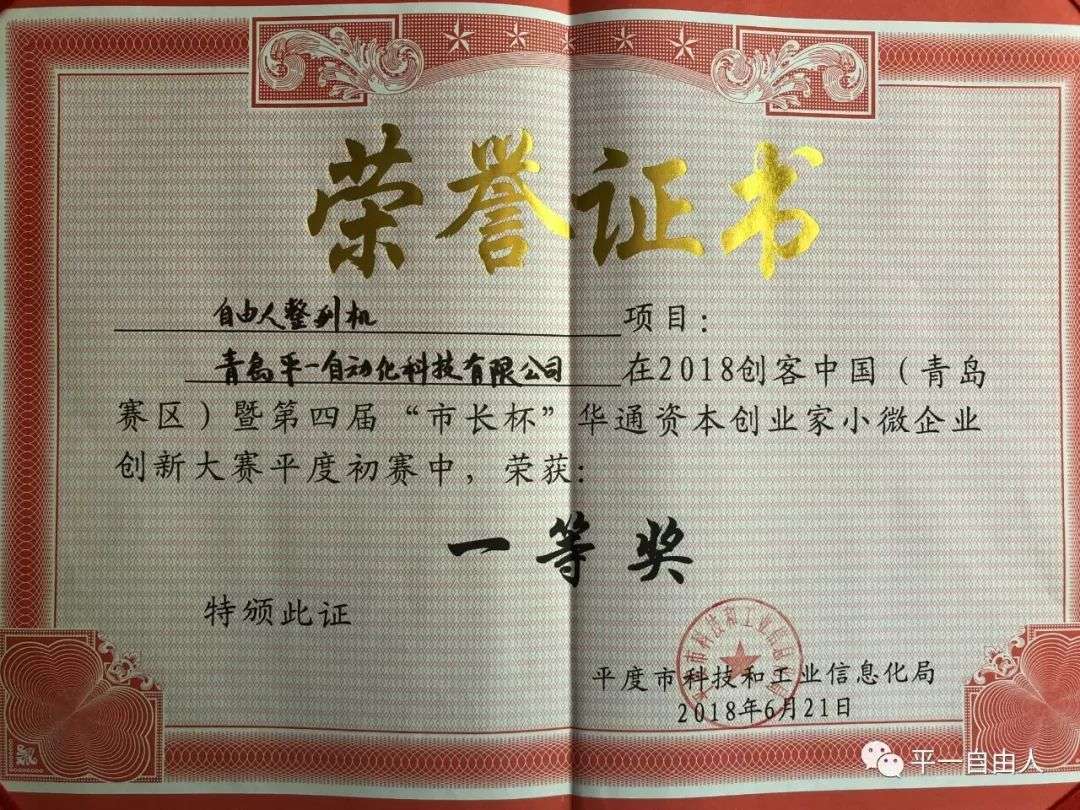 荣誉证书
自由人整列机 项目：
青岛平一自动化科技有限公司 在2018创客中国（青岛
赛区）暨第四届“市长杯”华通资本创业家小微企业
创新大赛平度初赛中，荣获：
一等奖
特颁此证
平度市科技和工业信息化局
2018年6月21日
平一自由人